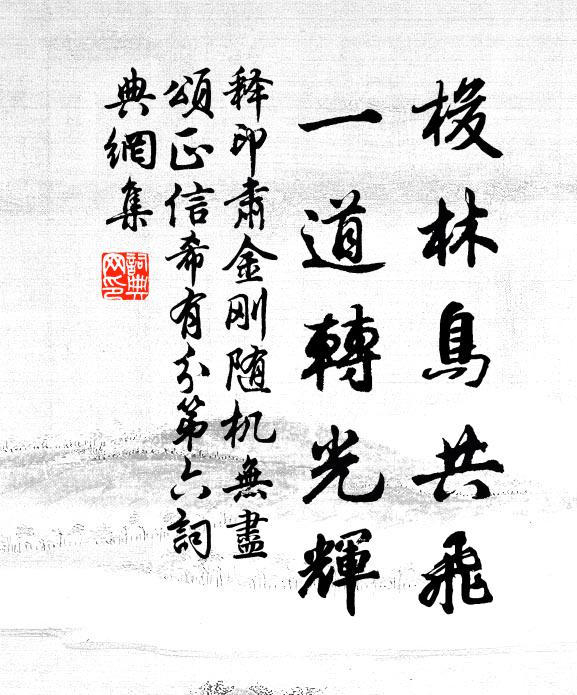 梭林鳥共飛
一道轉光輝
釋印肅金刚随机無盡
頌正信希有分第六詞
典網集
詞典网印